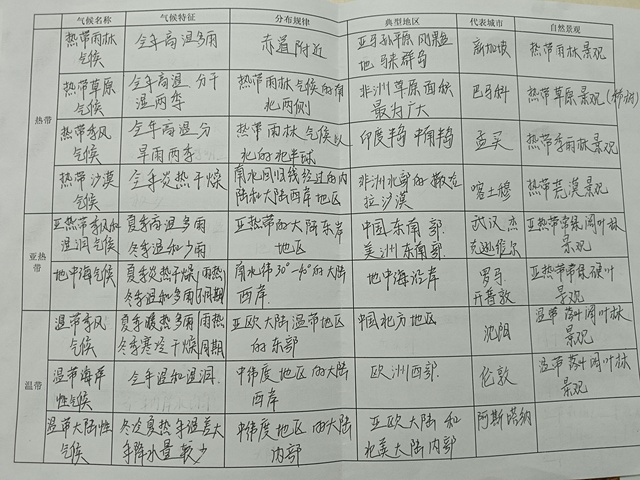 气候名称 气候特征 分布规律 典型地区 代表城市 自然景观
热带
热带雨林
气候
全年高温多雨
赤道附近
亚马孙平原 刚果盆
地 马来群岛
新加坡
热带雨林景观
热带草原
气候
全年高温 分干
湿两季
热带雨林气候的南
北两侧
非洲草原面积
最为广大
巴马科
热带草原景观
热带季风
气候
全年高温 分
旱雨两季
热带雨林气候以
北的北半球
印度半岛 中南半岛
孟买
热带季雨林景观
热带沙漠
气候
全年炎热干燥
南北回归线经过的内
陆和大陆西岸地区
非洲北部的撒哈
拉沙漠
喀土穆
热带荒漠景观
亚热
带
亚热带季风和
湿润气候
夏季高温多雨
冬季温和少雨
亚热带的大陆东岸
地区
中国东南部
美洲东南部
武汉 杰
克逊维尔
亚热带常绿阔叶林
景观
地中海气候
夏季炎热干燥 雨热
冬季温和多雨 不同期
南北纬30°-40°的大陆
西岸
地中海沿岸
罗马
开普敦
亚热带常绿硬叶林
景观
温带
温带季风
气候
夏季暖热多雨 雨热
冬季寒冷干燥 同期
亚欧大陆温带地区
的东部
中国北方地区
沈阳
温带落叶阔叶林
景观
温带海洋
性气候
全年温和湿润
中纬度地区的大陆
西岸
欧洲西部
伦敦
温带落叶阔叶林
景观
温带大陆性
气候
冬冷夏热 年温差大
年降水量较少
中纬度地区的大陆
内部
亚欧大陆和
北美大陆内部
阿斯塔纳